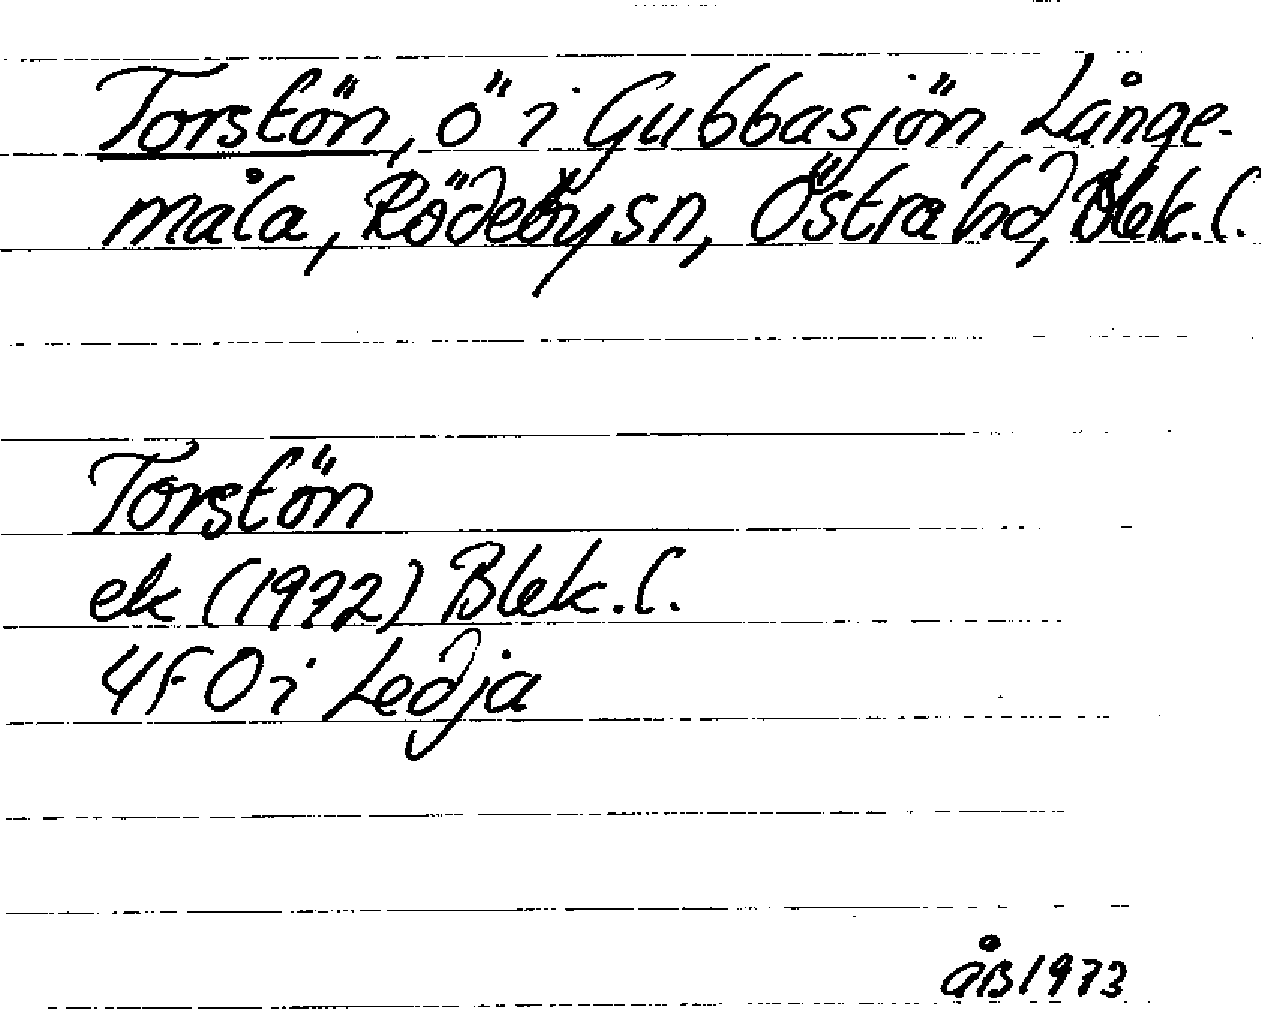 Torstön, ö i Gubbasjön, Långe-
måla, Rödebysn, Östra hd, Blek. l.
Torstön
ek (1972) Blek. l.
4F 0i Ledja
åB 1973